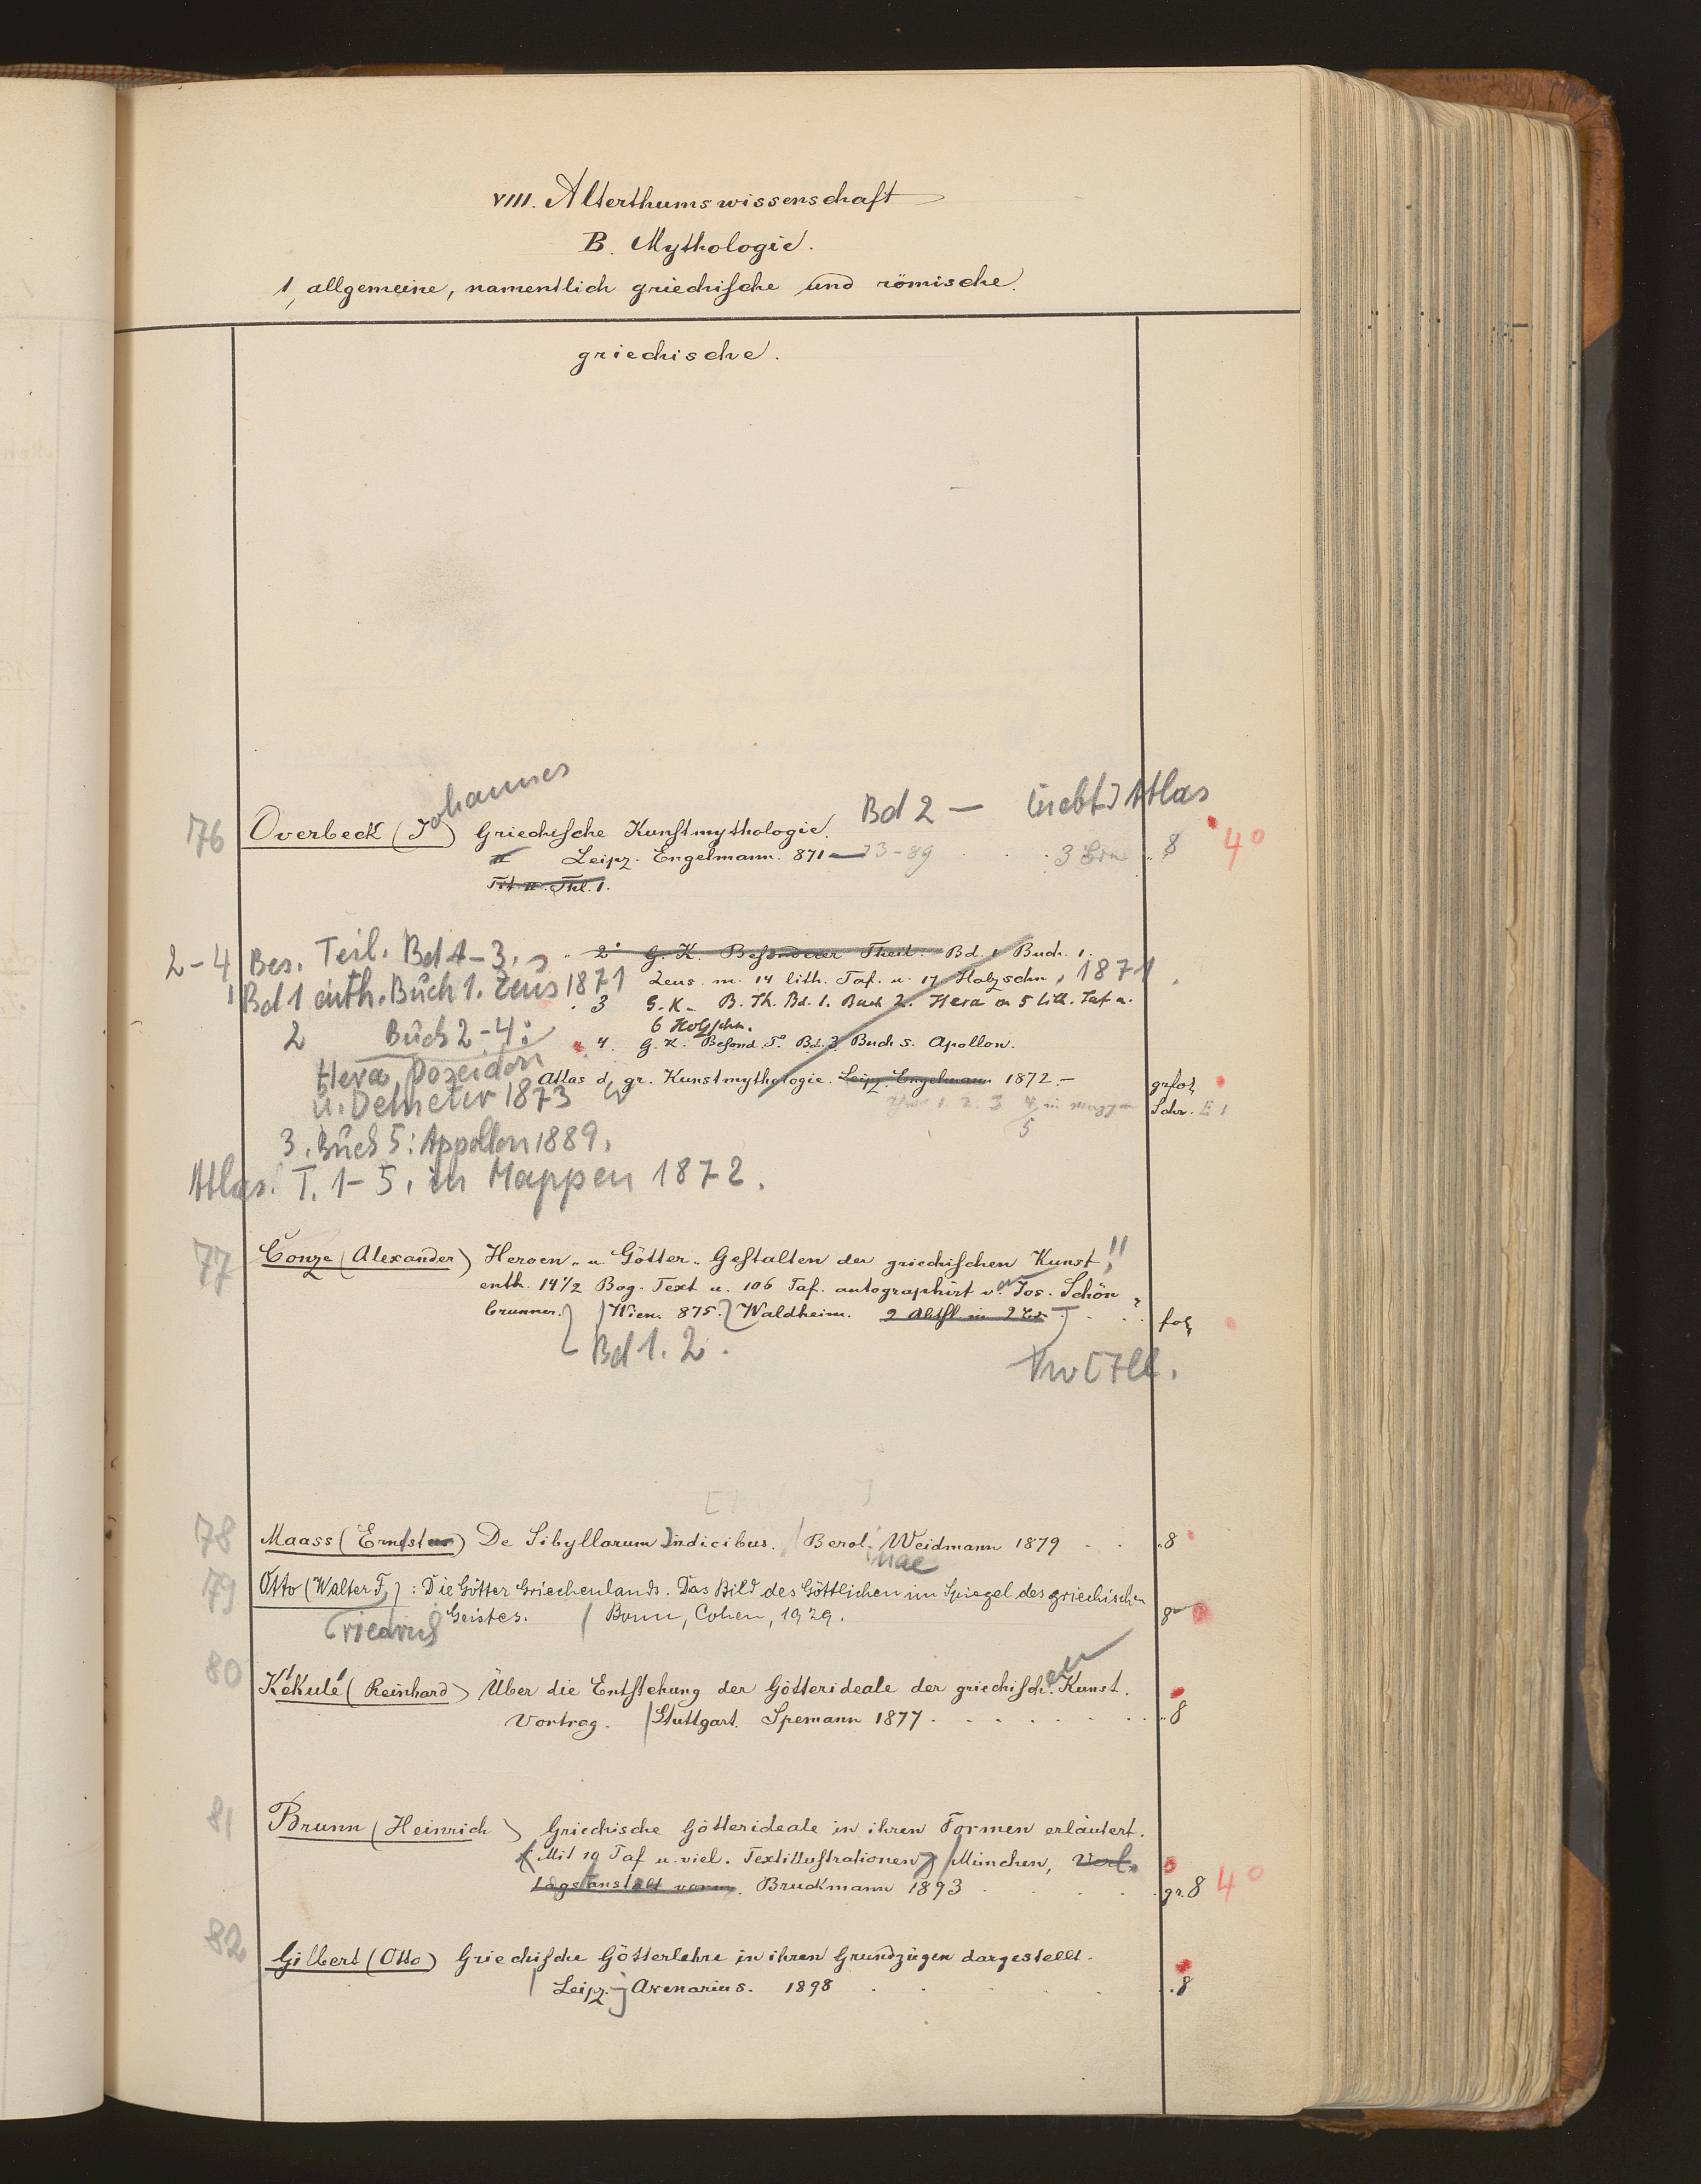 VIII. Alterthumswissenschaft
B. Mythologie.
1, allgemeine, namentlich griechische und römische.
griechische.
Johannes
Bd 2 — [nebst] Atlas
76 Overbeck (J) Griechische Kunstmythologie.
II Leipz. Engelmann. 871—73-89 . . . 3 8 4°
Tit. II. Thl. 1.
2-4 Bes. Teil. Bd 1-3. " 2 G. K. Besonderer Theil. Bd. 1 Buch. 1.
Bd 1 enth. Buch 1. Zeus 1871 Zeus. m. 14 lith. Taf. u. 17 Holzschn, 1871.
" 3 G. K. B. Th. Bd. 1. Buch 2. Hera m 5 lith. Taf u.
2 Buch 2-4: 6 Holzschn.
" 4. G. K. Besond. T. Bd. 3 Buch 5. Apollon.
Hera, Poseidon
Atlas d. gr. Kunstmythologie. Leipz. Engelmann 1872.- grfol
u. Demeter 1873 1. 2. 3 4 in Mappen Schr. E 1
5
3. Buch 5: Appollon 1889.
Atlas. T. 1-5. in Mappen 1872.
77 Conze (Alexander) Heroen- u Götter-Gestalten der griechischen Kunst!!
enth. 14 1/2 Bog. Text u. 106 Taf. autographirt v. Jos. Schön
brunner. Wien. 875. Waldheim. 2 Abthl. in 2 Bd. . . . fol
Bd 1. 2.
78 Maass (Ernestus) De Sibyllarum indicibus. Berol. Weidmann 1879 . . .8
nae
79 Otto (Walter F.): Die Götter Griechenlands. Das Bild des Göttlichen im Spiegel des griechischen
Friedrich Geistes. / Bonn, Cohen, 1929. 8
80 Kékulé (Reinhard) Über die Entstehung der Götterideale der griechisch.en Kunst.
Vortrag. Stuttgart. Spemann 1877 . . . . . . . . 8
81 Brunn (Heinrich) Griechische Götterideale in ihren Formen erläutert.
Mit 10 Taf u. viel. Textillustrationen / München, Verl.
lagsanstalt vorm. Bruckmann 1893 . . . gr. 8 4°
82 Gilbert (Otto) Griechische Götterlehre in ihren Grundzügen dargestellt.
Leipz. Avenarius. 1898 . . . . .8